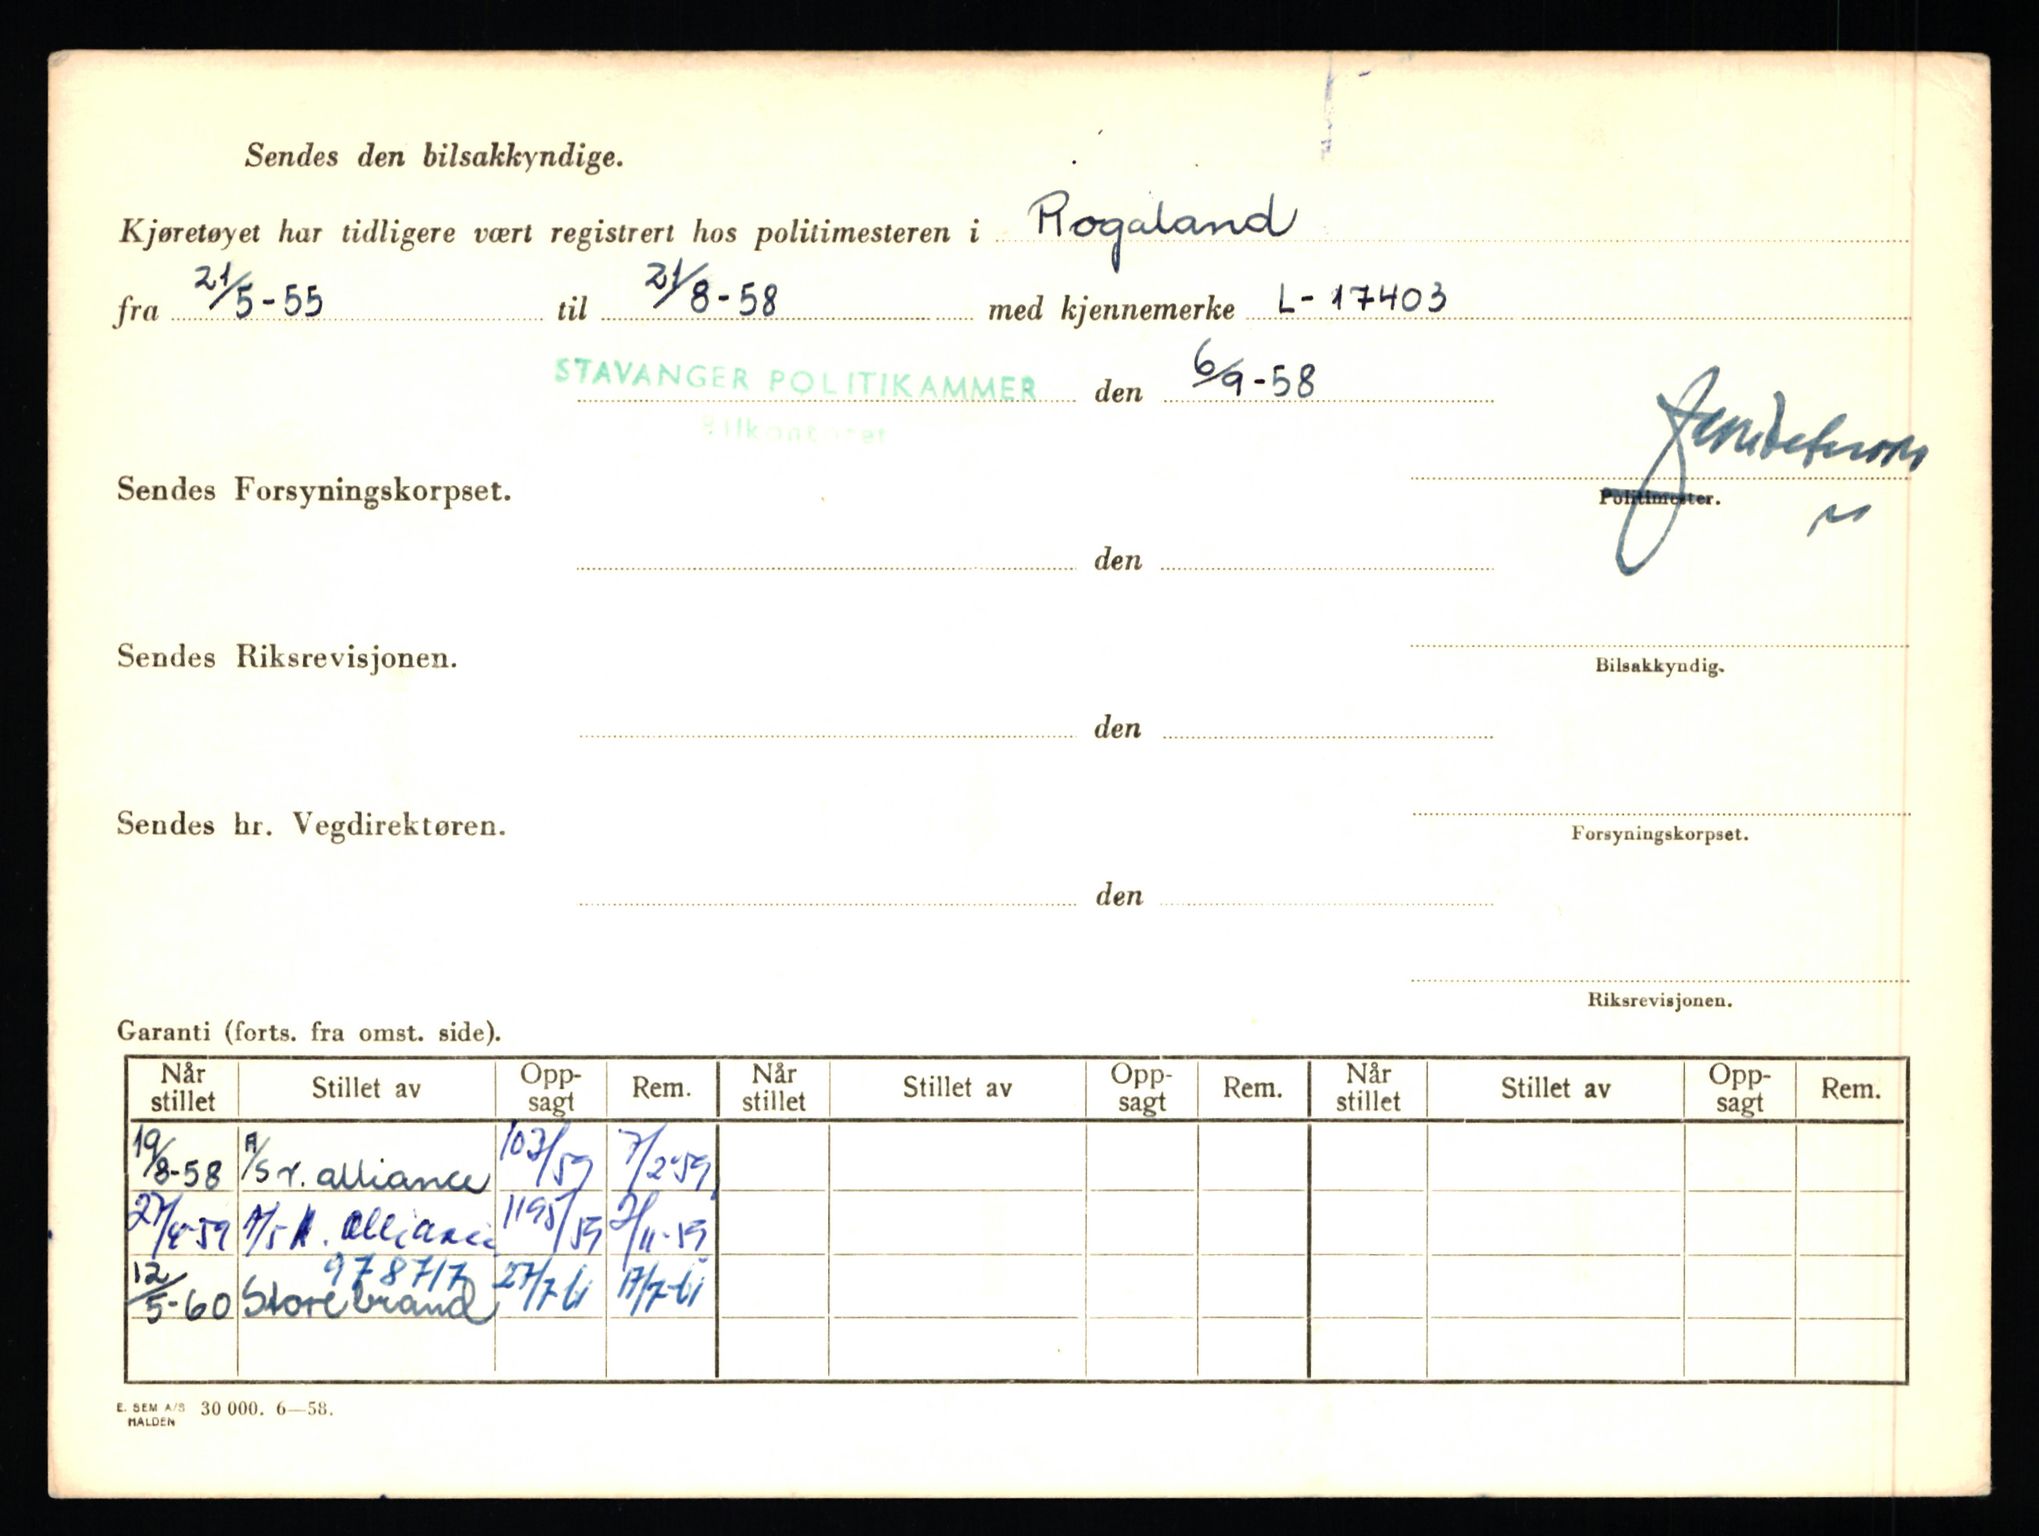 Sendes den bilsakkyndige.
Kjøretøyet har tidligere vært registrert hos politimesteren i Rogaland
fra 21/5-55 til 21/8-58 med kjennemerke L-17403
STAVANGER POLITIKAMMER den 6/9-58
Bilkontoret
Sendes Forsyningskorpset.
Politimester.
den
Sendes Riksrevisjonen.
Bilsakkyndig.
den
Sendes hr. Vegdirektøren.
Forsyningskorpset.
den
Riksrevisjonen.
Garanti (forts. fra omst. side).
Når stillet Stillet av Opp-sagt Rem. Når stillet Stillet av Opp-sagt Rem. Når stillet Stillet av Opp-sagt Rem.
19/8-58 A/S N. alliance 103/59 7/2-59
27/4-59 A/S N. Alliance 1195/59 2/11-59
978717
12/5-60 Storebrand 27/7-61 17/7-61
E. SEM A/S HALDEN 30 000. 6—58.